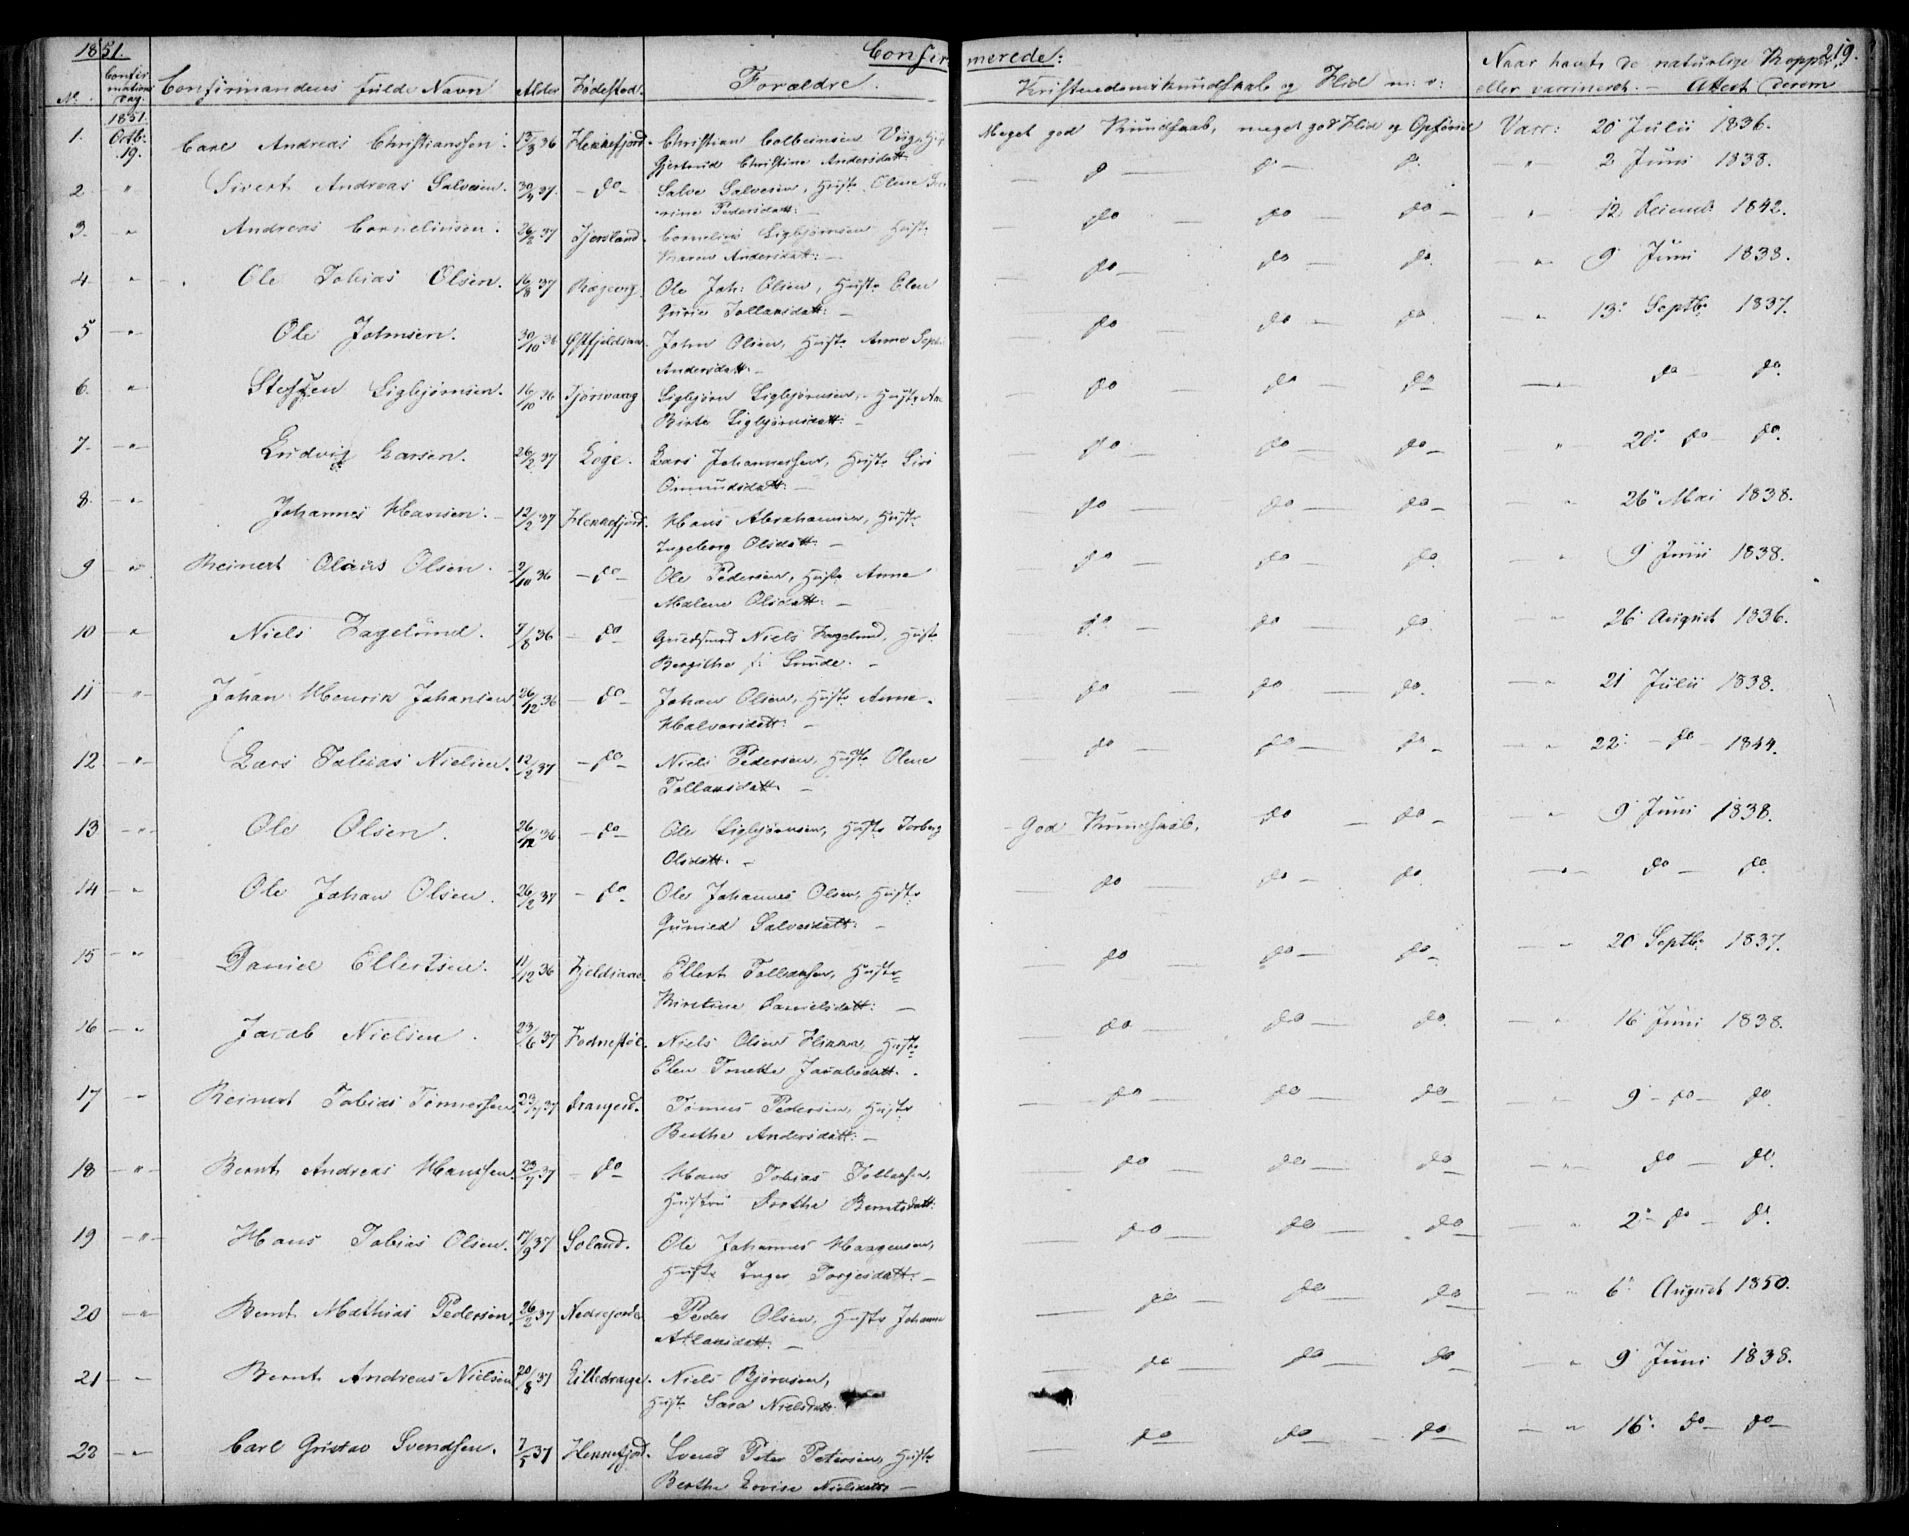 1851. Confirmerede: 219.
No. Confirmations Dag. Confirmandens fulde Navn Alder Fødested. Forældre. Kristendomskundskab og Flid m: v: Naar havt de naturlige Kopper, eller vaccineret. — Attest derom
1. 1851 Octb: 19. Carl Andreas Christianssen. 13/3 36 Hekkefjord. Christian Colbeinsen
Gjertrud Christine Andersdatt: Meget god Kundskab, meget god Flid og Opførsel Vacc: 20 Julii 1836.
2 — " Sivert Andreas Salvesen. 30/3 37. — do — Salve Salvesen, Hustr. Olene
Pedersdatt: — do — do — do. — " 2 Juni 1838.
3. — " Andreas Corneliussen. 26/2 37 Cornelius Sigbjørnsen Hustr.
Karen Andersdatt: — do — do — do — " 12. Decemb: 1842.
4 — " Ole Tobias Olsen. 16/8 37 Rægevig. Ole Joh: Olsen, Hustr. Elen
Gurie Tollaksdatt: — do — do — do. — " 9 Juni 1838.
5 — " Ole Johnsen. 30/10 36 John Olsen, Hustr. Anne Soph:
Andersdatt: — do — do — do. — " 13. Septb: 1837.
6. — " Steffen Sigbjørnsen. 16/10 36 Sigbjørn Sigbjørnsen, Hustr.
Birte Sigbjørnsdatt: — do — do — do — " do — do.
7. — " Ludvig Larsen. 26/2 37 Loge. Lars Johannessen, Hustr. Siri
Omundsdatt: — do — do — do — " 20. do — do.
8. — " Johannes Hansen. 12/2 37 Hekkefjord. Hans Abrahamsen, Hustr.
Ingeborg Olsdatt: — do — do — do — " 26. Mai 1838.
9 — " Reinert Olaus Olsen. 2/10 36 — do — Ole Pedersen, Hustr. Anne
Malene Olsdatt: — do — do — do. " 9 Juni 1838.
10 — " Niels Fagelund. 7/8 36 — do Niels Fagelund, Hustr.
Bergithe f: — do — do — do. — " 26 August 1836.
11 — " Johan Henrik Johansen 26/12 36 — do — Johan Olsen, Hustr. Anne
Halvorsdatt: — do — do — do. — " 21 Julii 1838.
12 — " Lars Tobias Nielsen. 12/2 37 — do — Niels Pedersen, Hustr. Olene
Tollaksdatt: — do — do — do — " 22. — do — 1844.
13 — " Ole Olsen. 26/12 36. — do — Ole Sigbjørnsen, Hustr. Torborg
Olsdatt. — God Kundskab, do — do — — " 9 Juni 1838.
14 — " Ole Johan Olsen. 26/2 37 — do — Ole Johannes Olsen, Hustr.
Salvesdatt: — do — do — do. — " do — do.
15 — " Daniel Ellertsen. 11/12 36 Fjeldsaae. Ellert Tollaksen, Hustr.
Danielsdatt: — do — do — do — — " 20 Septb: 1837.
16 — " Jacob Nielsen. 23/6 37 Niels Olsen Hustr.
Elen Tonette Jacobsdatt: — do — do — do. — " 16 Juni 1838.
17 — " Reinert Tobias Tønnessen 23/7 37 Tønnes Pedersen, Hustr.
Berthe Andersdatt: — do — do — do — " 9 — do — do.
18 — " Bernt Andreas Hanssen. 23/7 37 — do — Hans Tobias Tollaksen,
Hustru Dorthe Berntsdatt: — do — do — do — " do — do.
19 — " Hans Tobias Olsen. 17/9 37 Soland. Ole Johannes Haagensen,
Hustr. Inger Torgesdatt: — do — do — do — " 2. — do — do.
20 — " Bernt Mathias Pedersen. 26/2 37 Peder Olsen, Hustr. Johanne
Atlaksdatt: — do — do — do — " 6. August 1850.
21 — " Bernt Andreas Nielsen 20/8 37 Lilledrange. Niels Bjørnsen,
Hustr. Sara Nielsdatt: — do — do — do — " 9 Juni 1838.
22 — " Carl Gustav Svendsen. 7/5 37 Hekkefjord. Svend Peter Petersen, Hustr.
Berthe Lovise Nielsdatt: — do — do — do — — " 16. do — do —